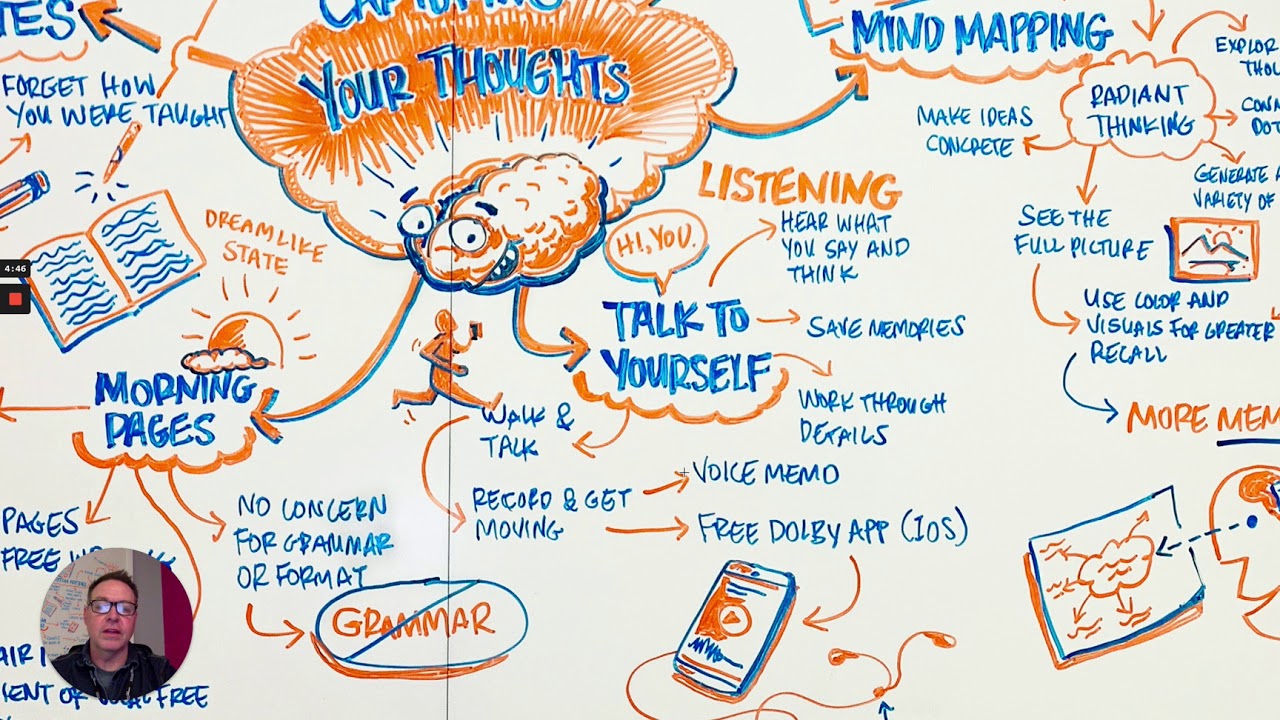 YOUR THOUGHTS
FORGET HOW
YOU WERE TAUGHT
DREAMLIKE
STATE
4:46
MORNING
PAGES
PAGES
FREE
NO CONCERN
FOR GRAMMAR
OR FORMAT
GRAMMAR
FREE
HI, YOU.
LISTENING
HEAR WHAT
YOU SAY AND
THINK
TALK TO
YOURSELF
SAVE MEMORIES
WORK THROUGH
DETAILS
WALK &
TALK
RECORD & GET
MOVING
VOICE MEMO
FREE DOLBY APP (IOS)
MIND MAPPING
RADIANT
THINKING
MAKE IDEAS
CONCRETE
EXPLOR
THOU
CONN
DOT
GENERATE A
VARIETY OF
SEE THE
FULL PICTURE
USE COLOR AND
VISUALS FOR GREATER
RECALL
MORE MEM